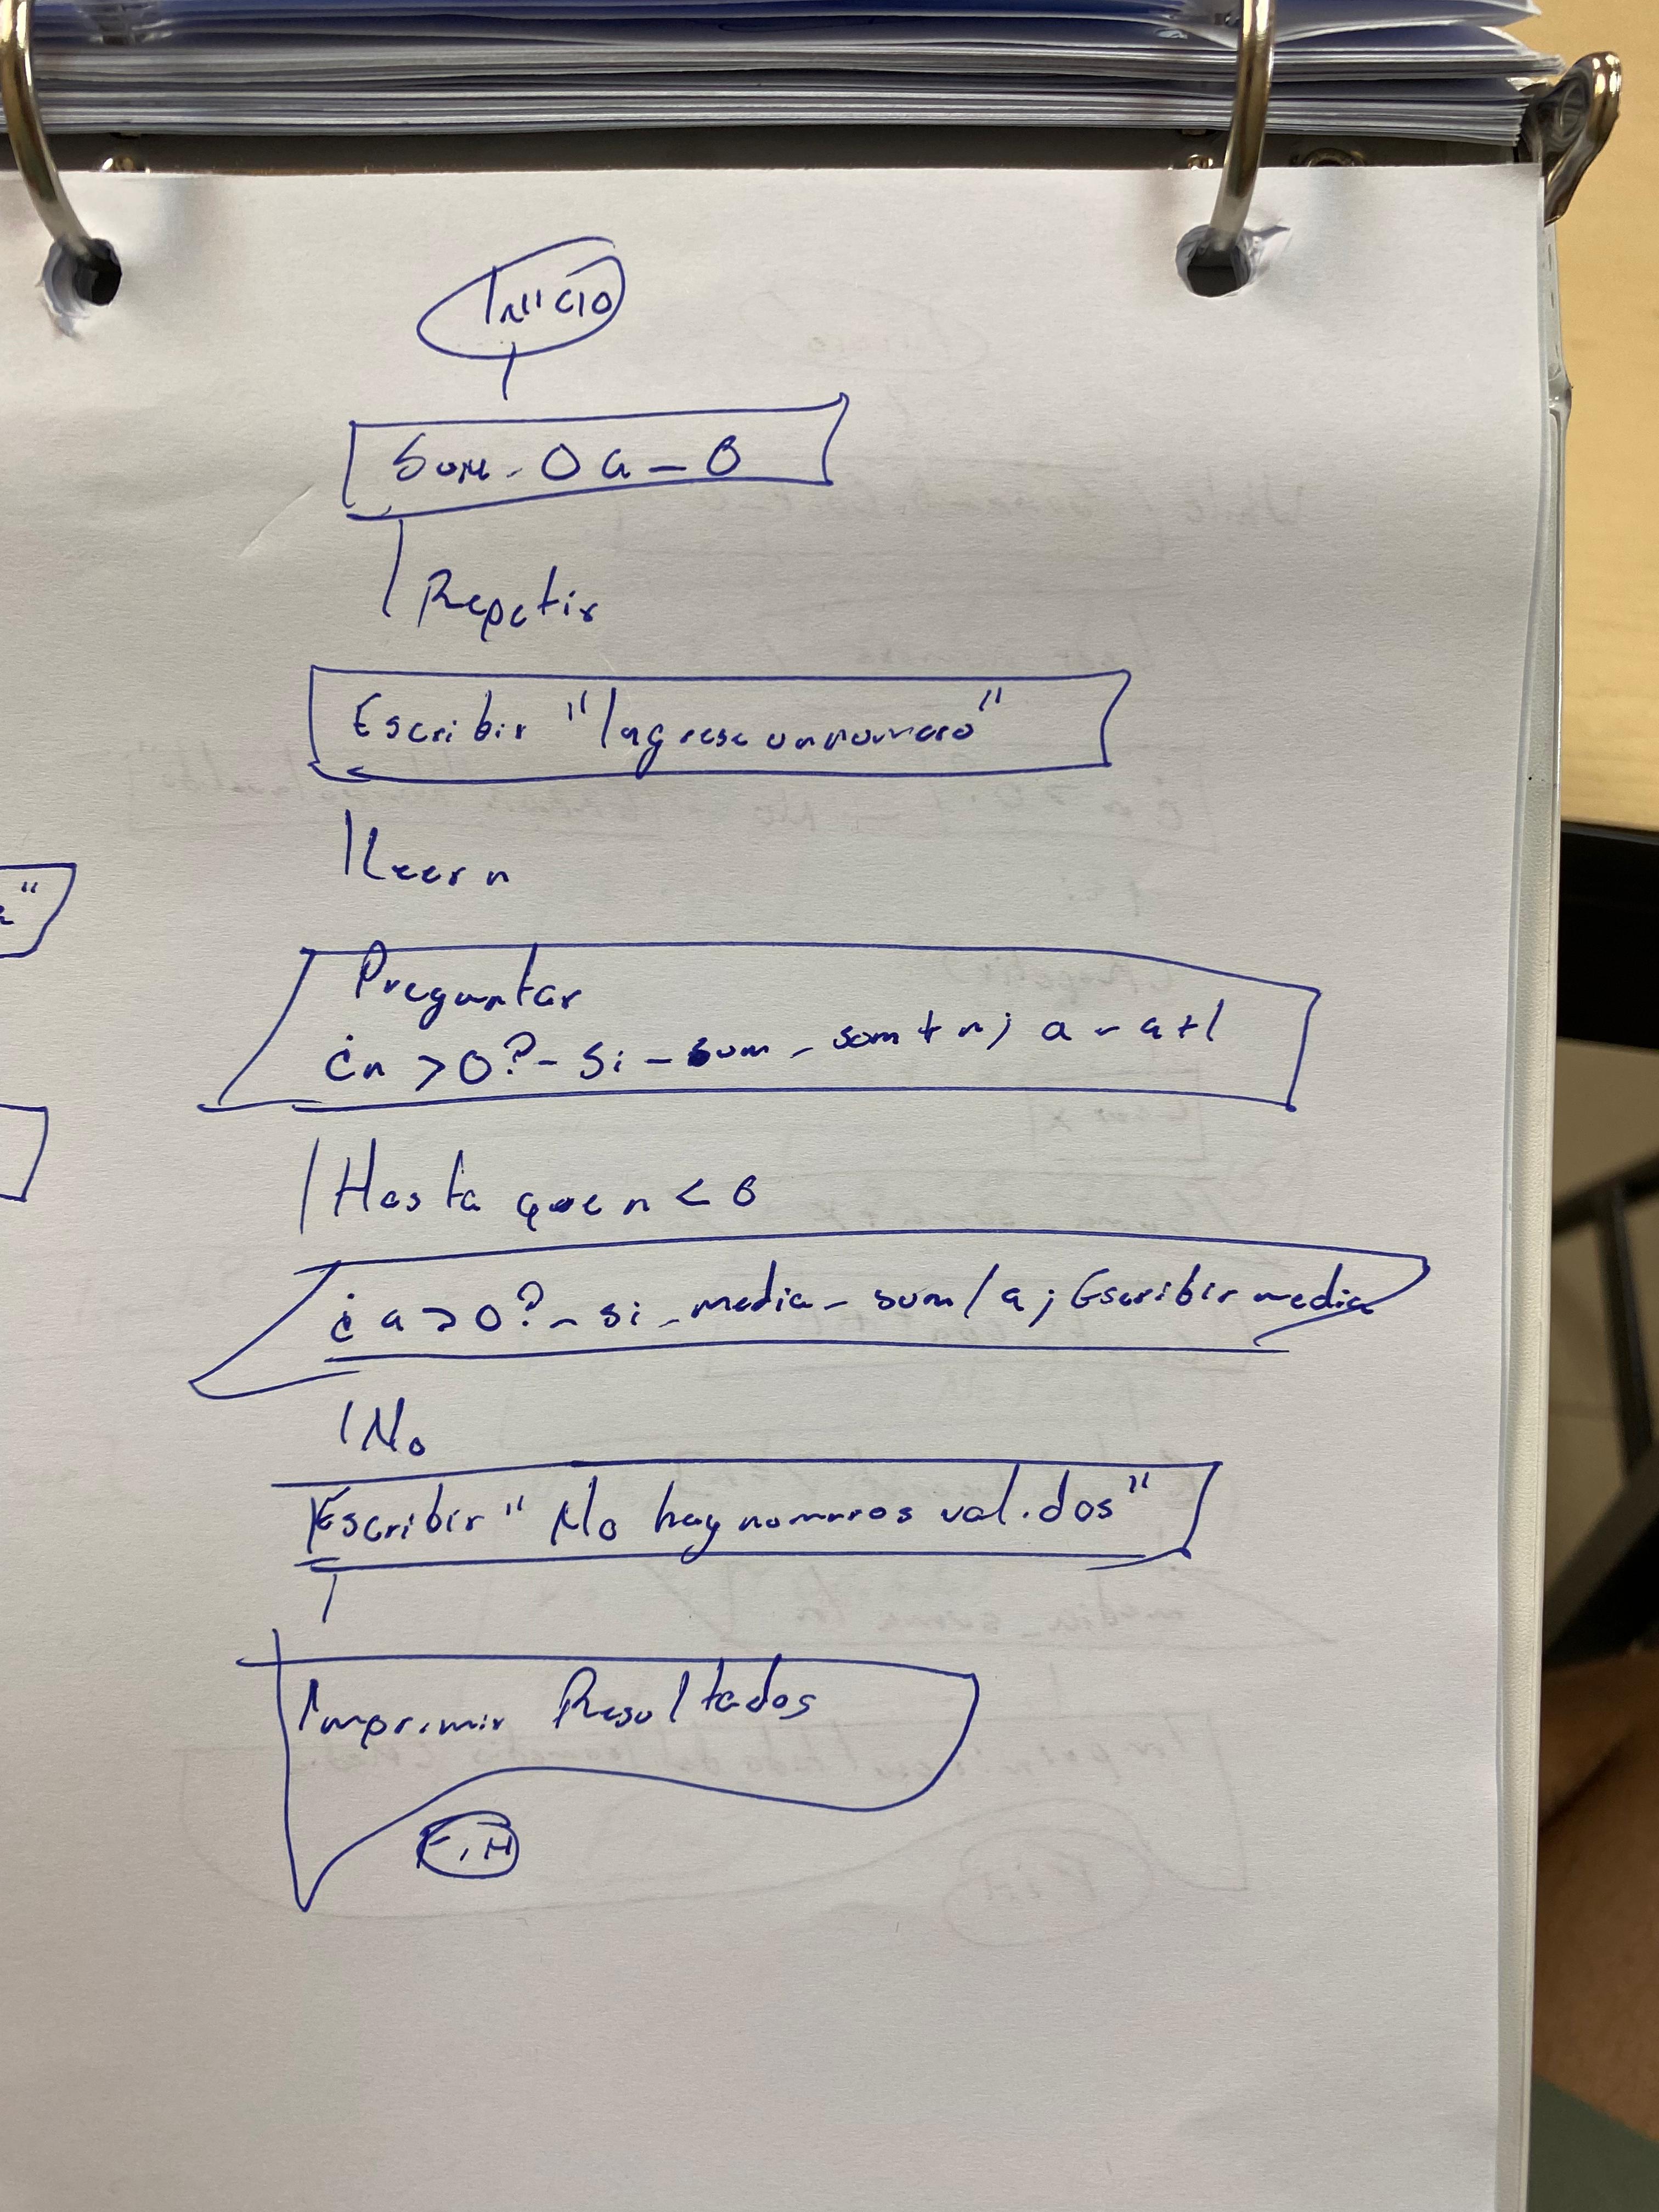 Inicio
Sum - 0 a - 0
Repetir
Escribir "Ingrese un numero"
Leer n
Preguntar
¿n > 0? - Si - sum - sum + n; a - a + 1
Hasta que n < 0
¿a > 0? - si - media - sum / a; Escribir media
No
Escribir "No hay numeros validos"
Imprimir Resultados
Fin